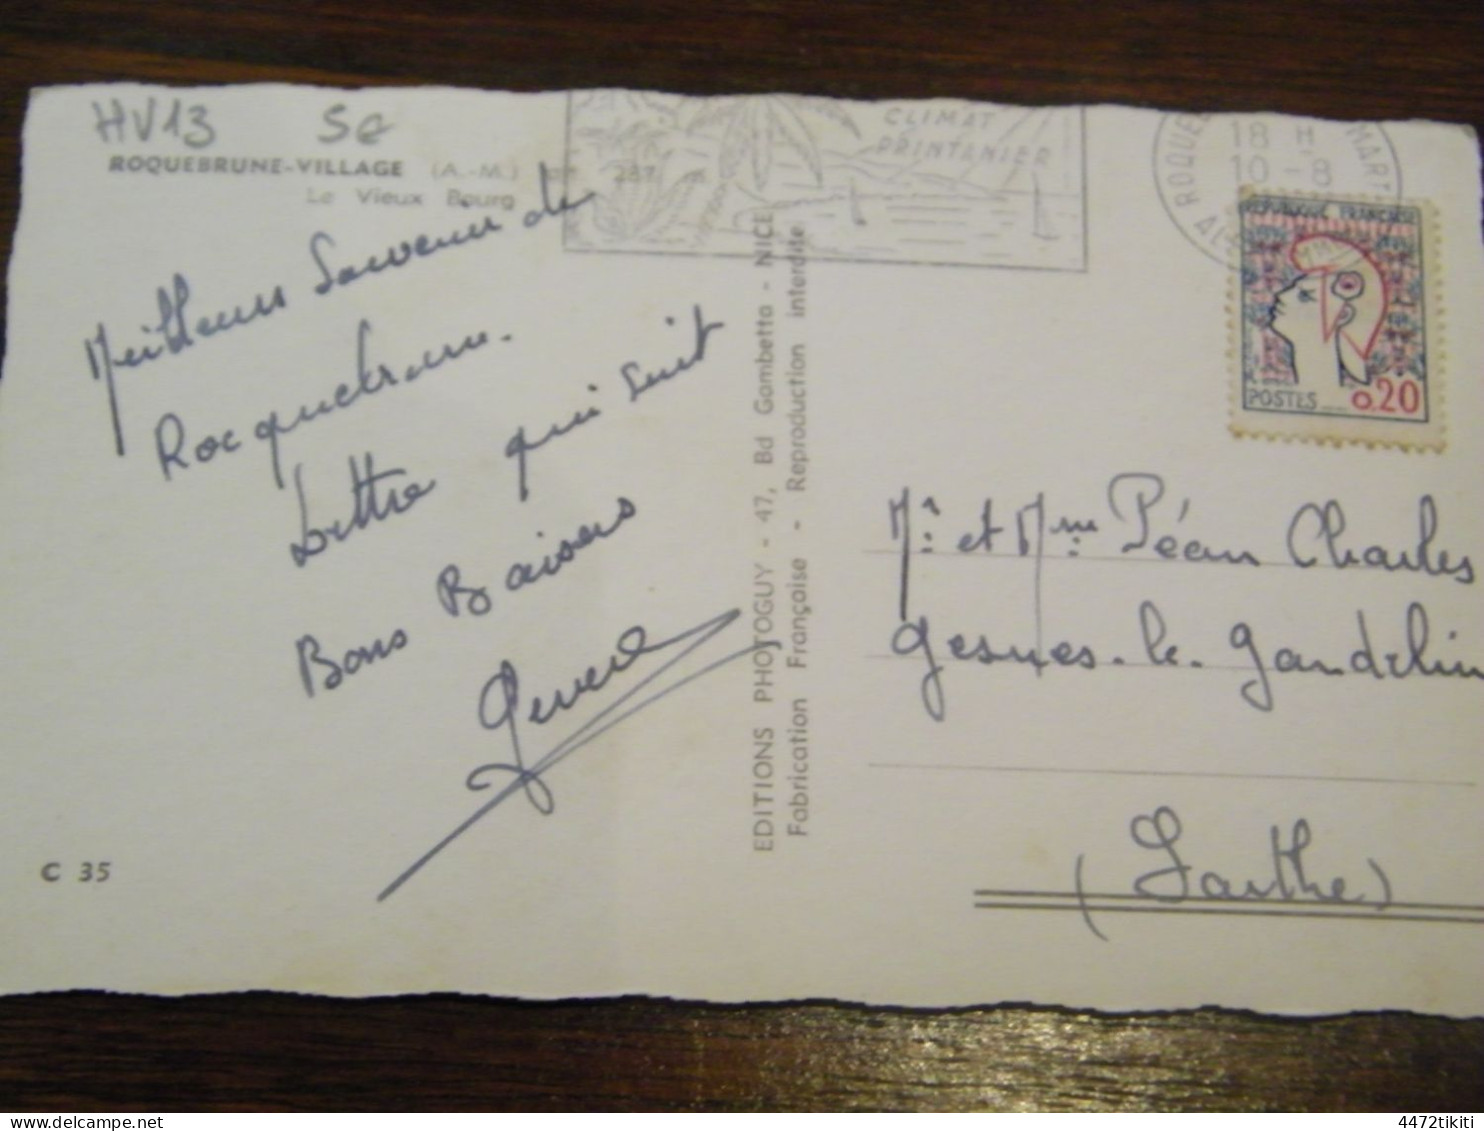 HV13 5e
ROQUEBRUNE-VILLAGE (A.-M.) 287
Le Vieux Bourg
CLIMAT
PRINTANIER
18 H
10 - 8
REPUBLIQUE FRANÇAISE
POSTES 0,20
Meilleurs Souvenir de
Rocquebrune.
Lettre qui suit
Bons Baisers
EDITIONS PHOTOGUY - 47, Bd Gambetta - NICE
Fabrication Française - Reproduction interdite
Mr: et Mme: Péan Charles
Gesnes-le-Gandelin
(Sarthe)
C 35
4472tikiti